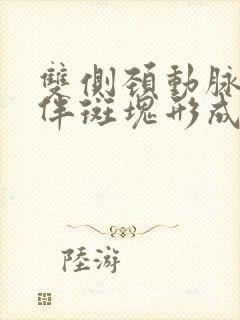 雙側頚動脉
伴斑塊形成
陸游